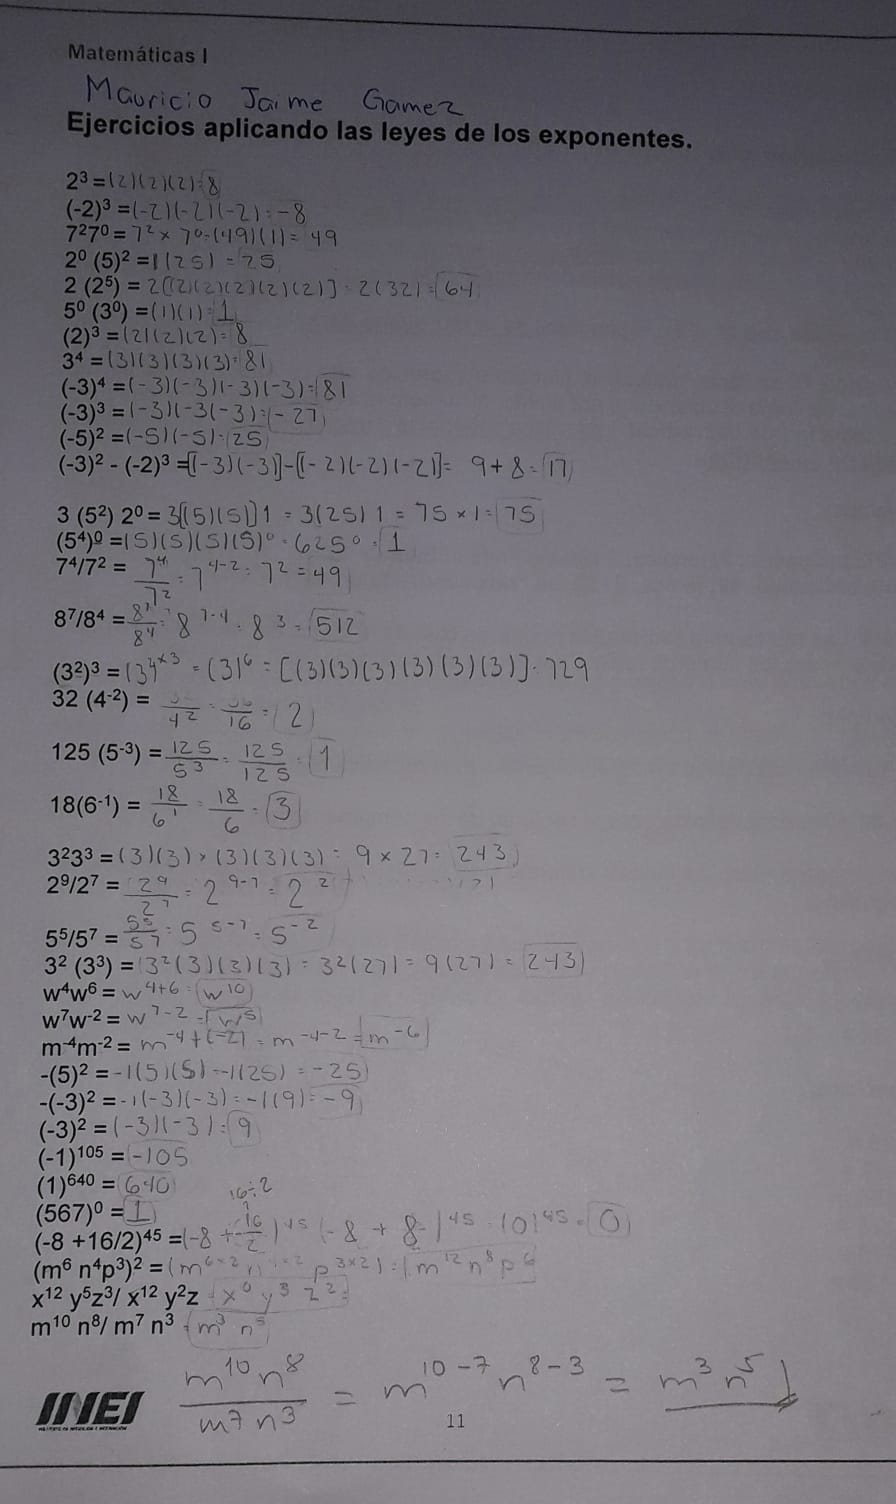 Matemáticas I
Mauricio Jaime Gamez
Ejercicios aplicando las leyes de los exponentes.
2³ = (2)(2)(2) = 8
(-2)³ = (-2)(-2)(-2) = -8
7²7⁰ = 7² x 7⁰ = (49)(1) = 49
2⁰ (5)² = 1(25) = 25
2 (2⁵) = 2[(2)(2)(2)(2)(2)] = 2(32) = 64
5⁰ (3⁰) = (1)(1) = 1
(2)³ = (2)(2)(2) = 8
3⁴ = (3)(3)(3)(3) = 81
(-3)⁴ = (-3)(-3)(-3)(-3) = 81
(-3)³ = (-3)(-3(-3) = -27
(-5)² = (-5)(-5) = 25
(-3)² - (-2)³ = [(-3)(-3)]-[(-2)(-2)(-2)] = 9+8 = 17
3 (5²) 2⁰ = 3[(5)(5)]1 = 3(25)1 = 75 x 1 = 75
(5⁴)⁰ = (5)(5)(5)(5)⁰ = 625⁰ = 1
7⁴/7² = 7⁴/7² = 7⁴⁻² = 7² = 49
8⁷/8⁴ = 8⁷/8⁴ = 8⁷⁻⁴ = 8³ = 512
(3²)³ = = (3)⁶ = [(3)(3)(3)(3)(3)(3)] = 729
32 (4⁻²) = 4² = 16 = 2
125 (5⁻³) = 125/5³ = 125/125 = 1
18(6⁻¹) = 18/6¹ = 18/6 = 3
3²3³ = (3)(3) x (3)(3)(3) = 9 x 27 = 243
2⁹/2⁷ = 2⁹/2⁷ = 2⁹⁻⁷ = 2²
5⁵/5⁷ = 5⁵/5⁷ = 5⁵⁻⁷ = 5⁻²
3² (3³) = 3²(3)(3)(3) = 3²(27) = 9(27) = 243
w⁴w⁶ = w⁴⁺⁶ = w¹⁰
w⁷w⁻² = w⁷⁻² = w⁵
m⁻⁴m⁻² = m⁻⁴⁺⁽⁻²⁾ = m⁻⁴⁻² = m⁻⁶
-(5)² = -1(5)(5) = -1(25) = -25
-(-3)² = -1(-3)(-3) = -1(9) = -9
(-3)² = (-3)(-3) = 9
(-1)¹⁰⁵ = -105
(1)⁶⁴⁰ = 640
16÷2
(567)⁰ = 1
(-8 +16/2)⁴⁵ = (-8 + 16/2)⁴⁵ (-8 + 8)⁴⁵ = (0)⁴⁵ = 0
(m⁶ n⁴p³)² = (m⁶ˣ² p³ˣ²) = m¹²n⁸p⁶
x¹² y⁵z³/ x¹² y²z = x⁰ y³ z²
m¹⁰ n⁸/ m⁷ n³ = m³ n⁵
m¹⁰n⁸/m⁷n³ = m¹⁰⁻⁷n⁸⁻³ = m³n⁵
INEI
11